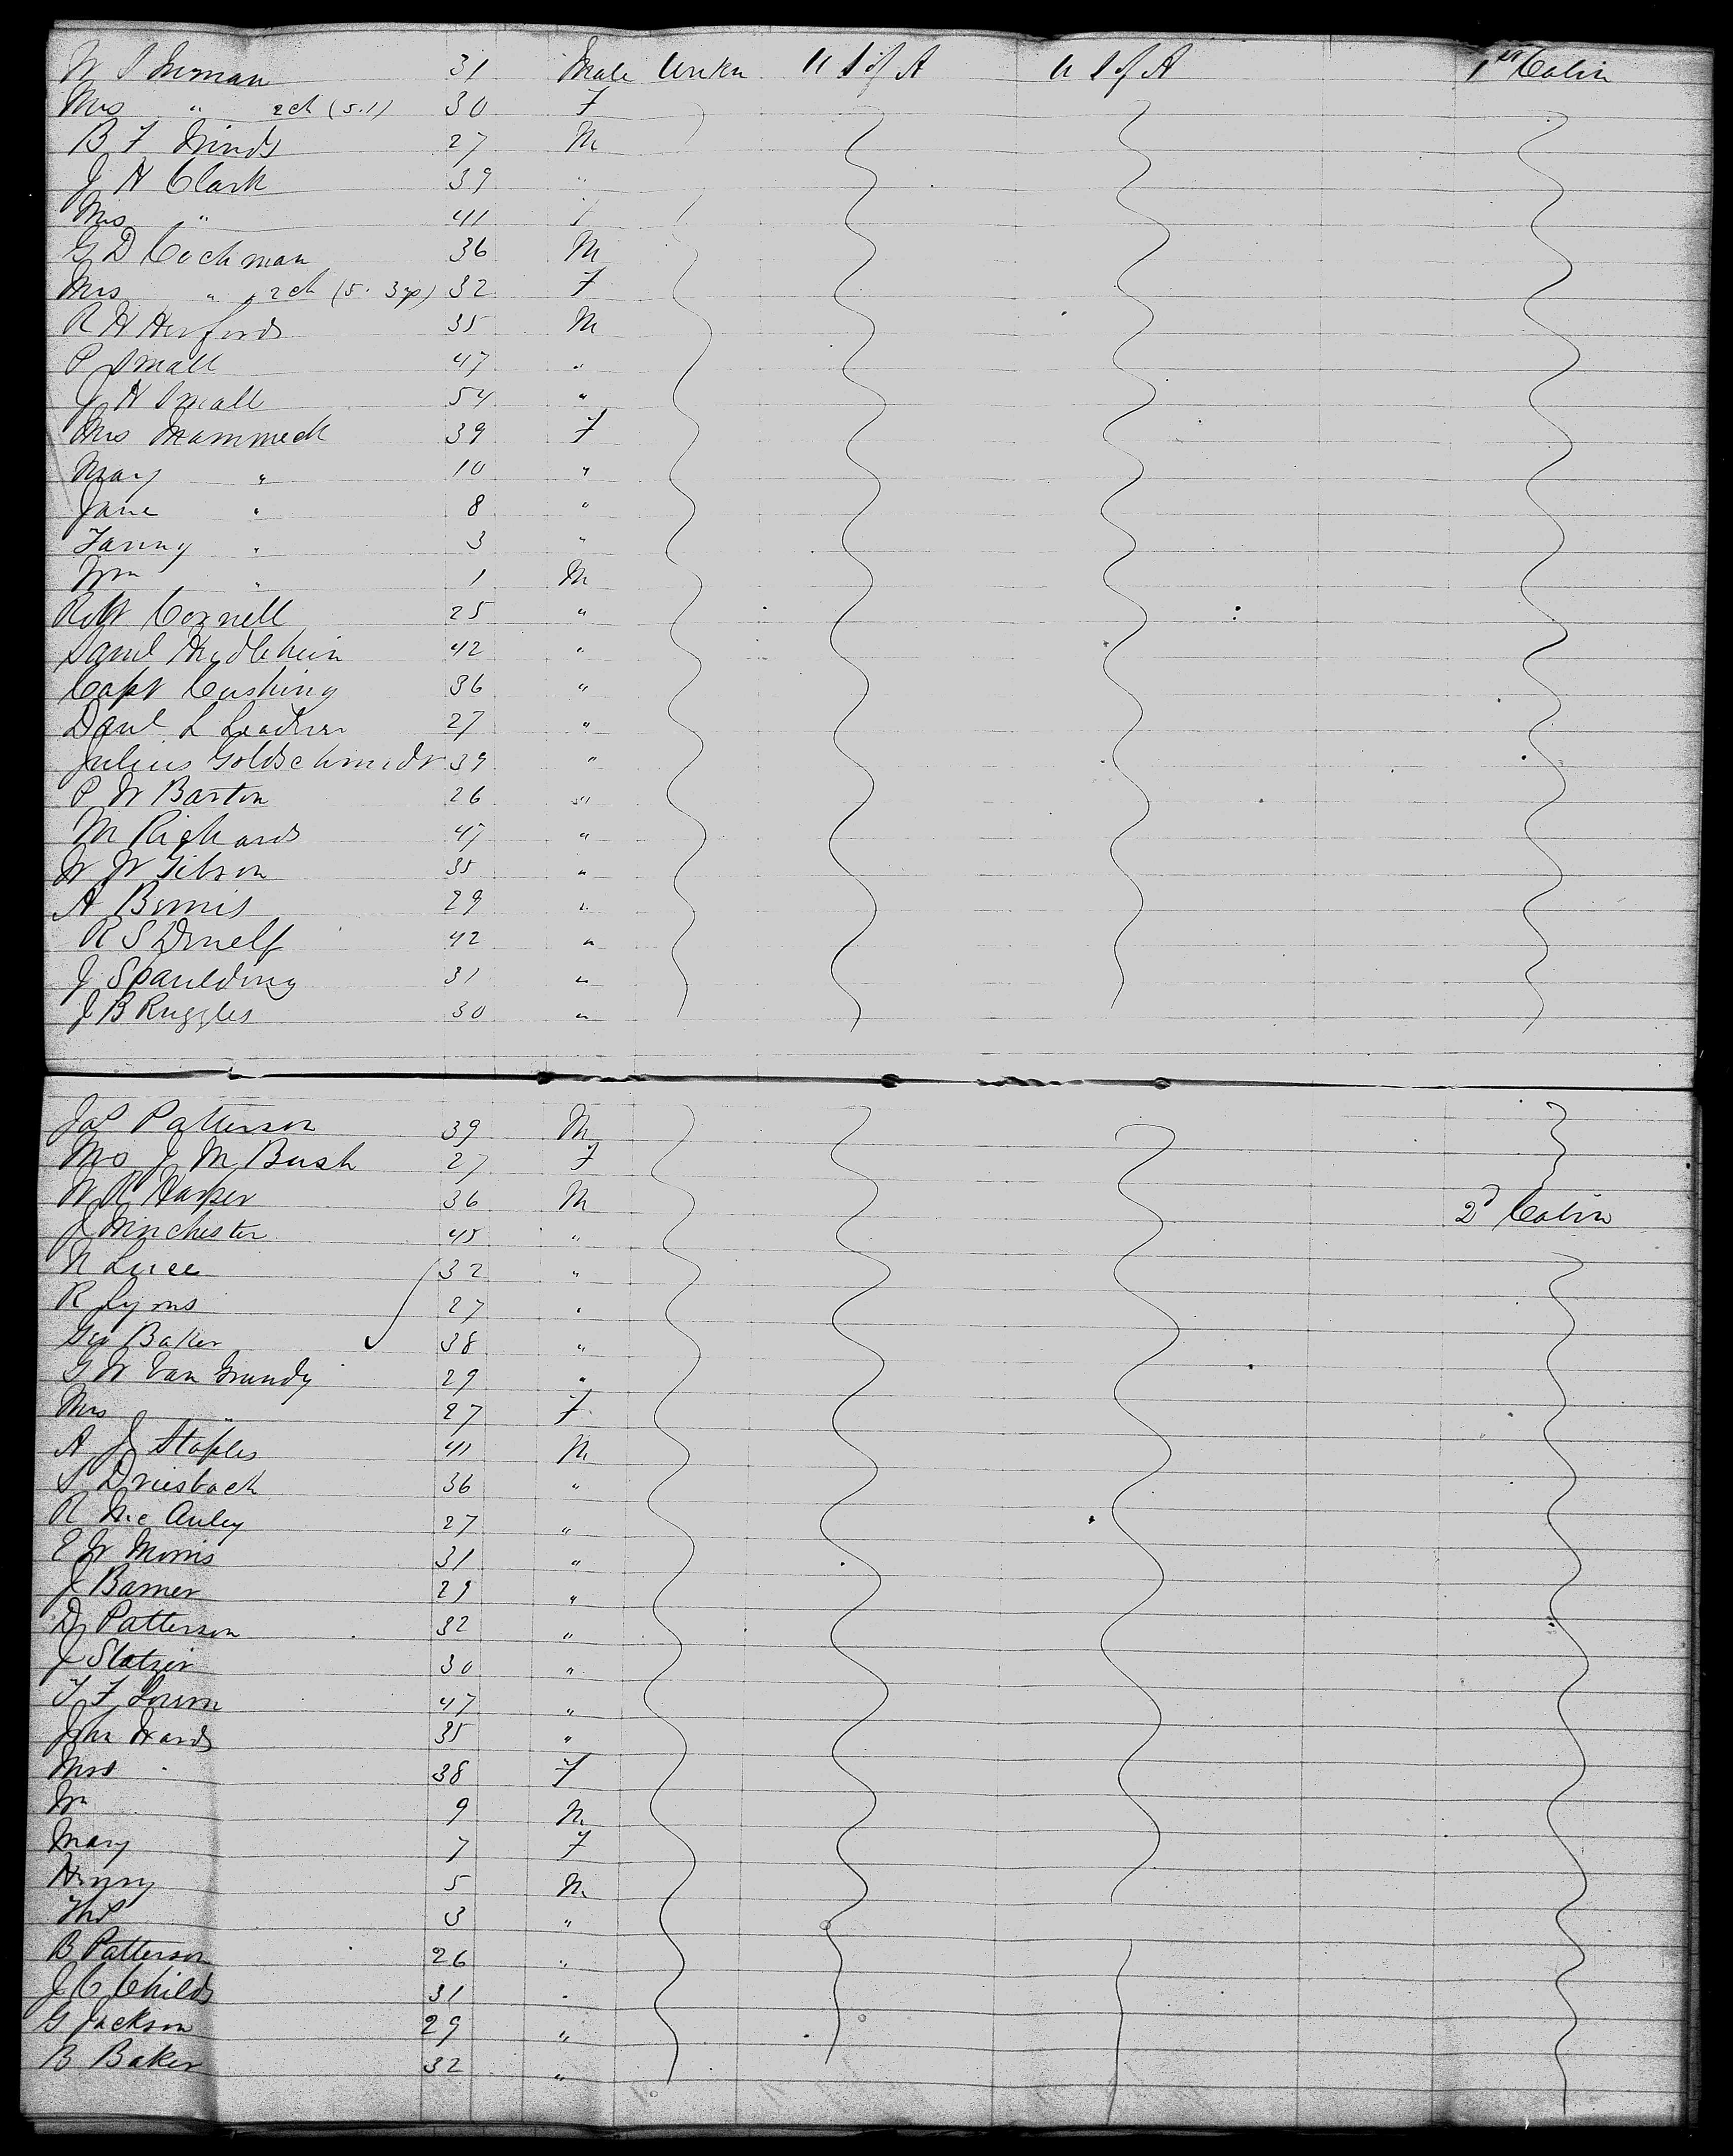 W S Inman 31 Male Unkn U S of A U S of A 1st Cabin
Mrs " 2ch (5.1) 30 F
B F Hinds 27 M
J H Clark 39 "
Mrs " 41 F
G D Cochman 36 M
Mrs " 2ch (5. 3) 32 F
R H 35 M
P Small 47 "
J H Small 54 "
Mrs Hammeck 39 F
Mary " 10 "
Jane " 8 "
Fanny " 3 "
Wm " 1 M
Robt Cornell 25 "
Saml 42 "
Capt Cushing 36 "
Danl L 27 "
Julius Goldschmidt 39 "
P W Barton 26 "
M Richards 47 "
W W Gibson 35 "
A Bemis 29 "
R S 42 "
J Spaulding 31 "
J B Ruggles 30 "
Jas Patterson 39 M
Mrs J M Bush 27 F
W R Harper 36 M 2d Cabin
J Winchester 45 "
N Luce 32 "
R Lyons 27 "
Geo Baker 38 "
G W Van Grundy 29 "
Mrs " 27 F
A J Staples 41 M
S Driesbach 36 "
R McAuley 27 "
E W Morris 31 "
J Barner 29 "
D Patterson 32 "
J Slatzer 30 "
T F 47 "
John Wards 35 "
Mrs " 38 F
Wm 9 M
Mary 7 F
Henry 5 M
Thos 3 "
B Patterson 26 "
J C Childs 31 "
G Jackson 29 "
B Baker 32 "